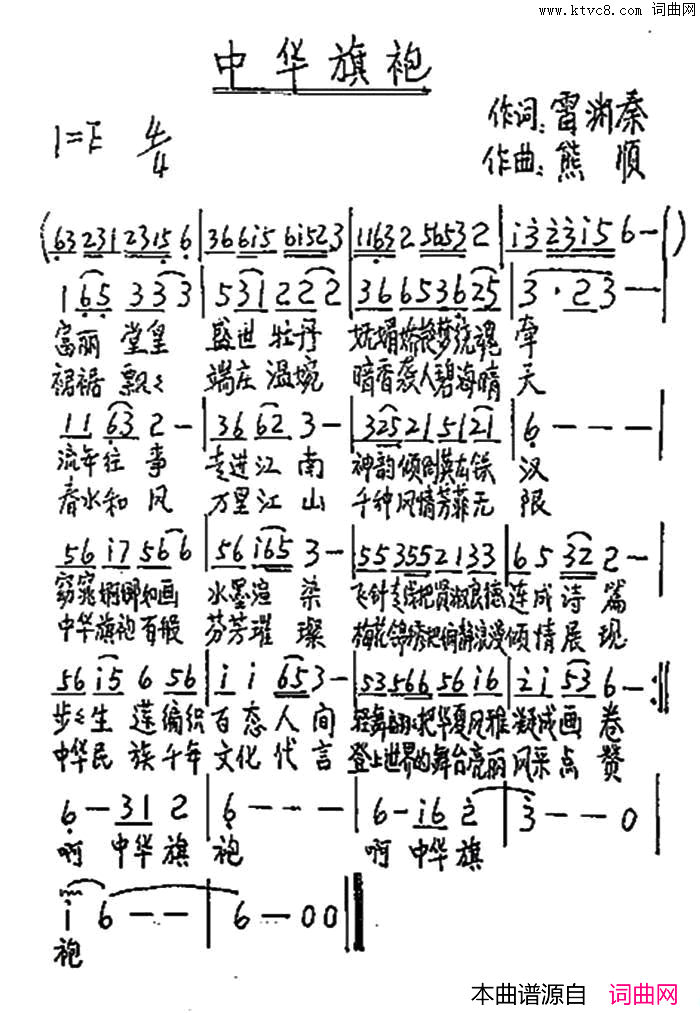 www.ktvc8.com 词曲网
中华旗袍
作词:雷湘秦
1=F 4/4
作曲:熊 顺
(63 231 2315 6 | 36 6i5 6i523 | 1163 2 5653 2 | i3 23i5 6 - )
1 65 3 33 3 | 5 31 2 22 2 | 36 65 36 25 | 3 · 2 3 - |
富丽 堂皇 盛世 牡丹 妩媚娇艳梦绕魂 牵
裙裾 飘飘 端庄 温婉 暗香袭人碧海晴 天
11 63 2 - | 36 62 3 - | 325 21 51 21 | 6 - - - |
流年往 事 走进江 南 神韵倾倒 汉
春水和 风 万里江 山 千种风情芳菲无 限
56 i7 56 6 | 56 i65 3 - | 55 355 21 33 | 6 5 32 2 - |
窈窕婀娜如画 水墨渲 染 飞针走线把贤淑良德连成诗 篇
中华旗袍百般 芬芳璀 璨 梅花锦绣把恬静浪漫倾情展 现
56 i5 6 56 | i i 65 3 - | 53 566 56 i6 | 2 i 53 6 - :||
步步生 莲编织 百态人 间 轻舞翩翩把华夏风雅凝成画 卷
中华民 族千年 文化代 言 登上世界的舞台亮丽风采点 赞
6 - 31 2 | 6 - - - | 6 - i6 2 | 3 - - 0 |
啊 中华旗 袍 啊 中华旗
i 6 - - | 6 - 0 0 ||
袍
本曲谱源自 词曲网